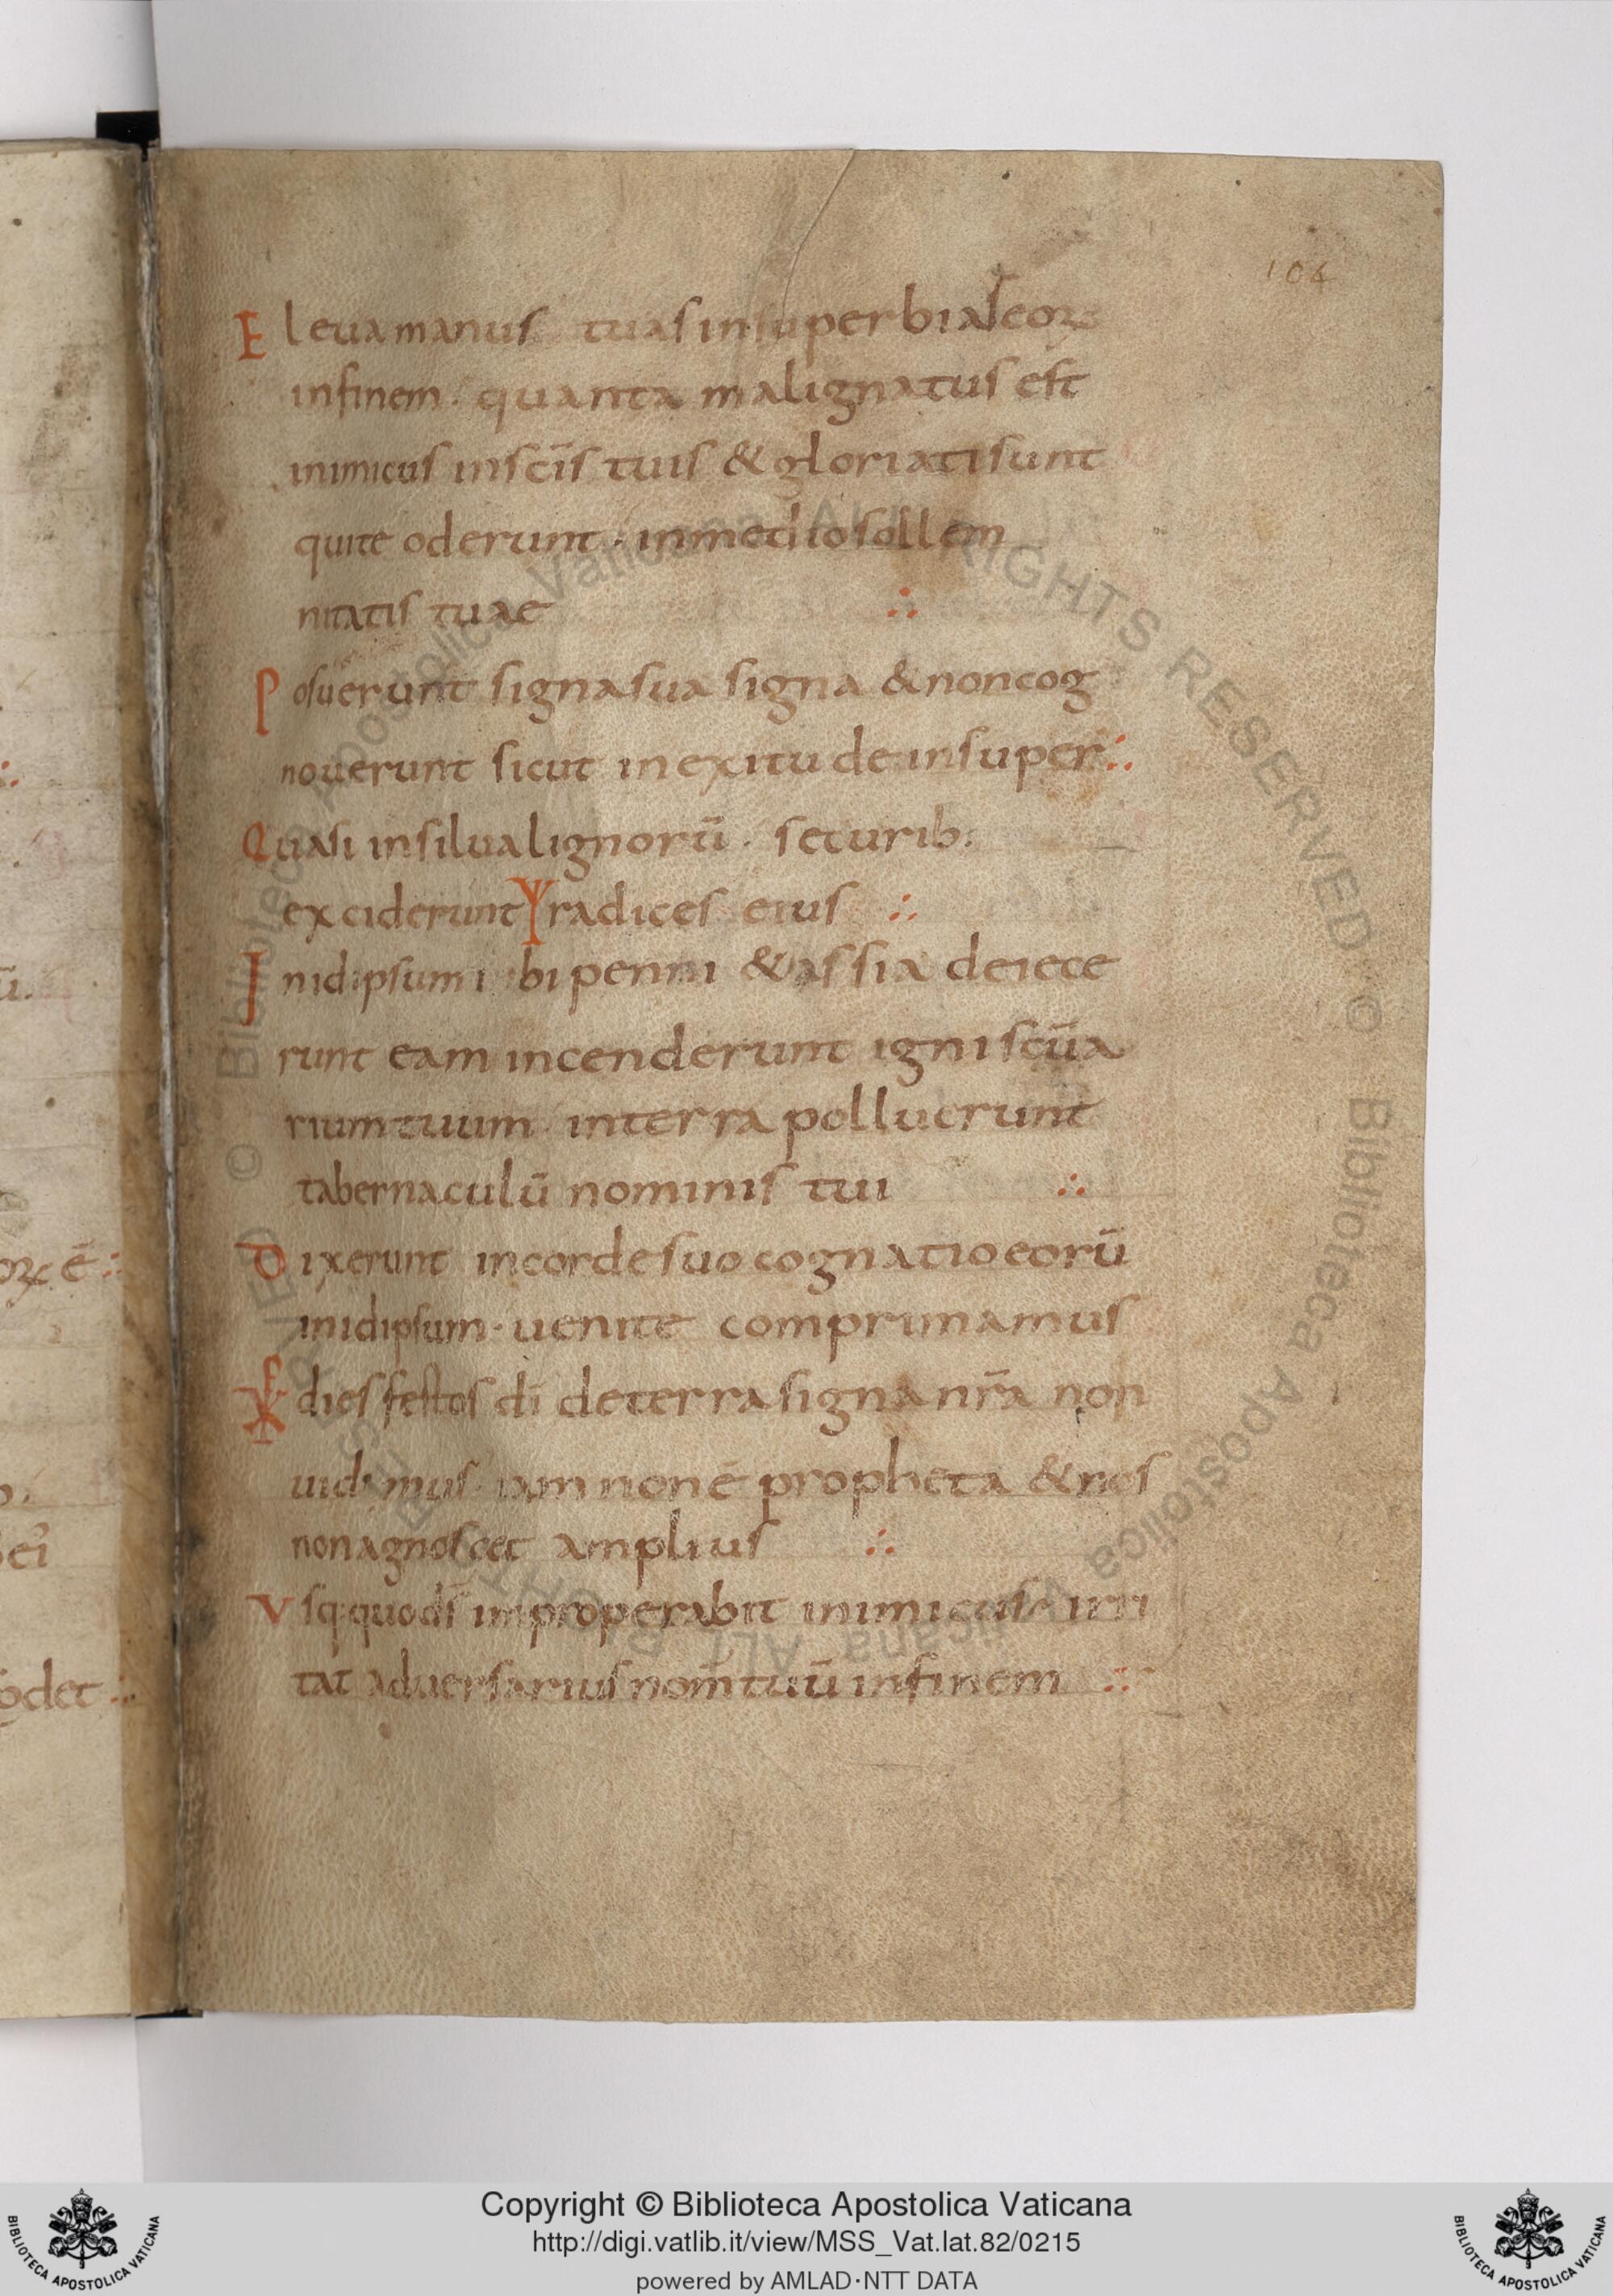 104
Eleua manus tuas insuperbias eoꝝ
infinem · quanta malignatus est
inimicus inscīs tuis & gloriati sunt
quite oderunt · inmedio sollem
nitatis tuae ∴
Posuerunt signa sua signa & noncog
nouerunt sicut in exitu deinsuper ∴
Quasi insilua lignorū · securib:
exciderunt radices eius ∴
Inidipsum ibi penni & assia deiece
runt eam incenderunt igni scūa
rium tuum · interra polluerunt
tabernaculū nominis tui ∴
Dixerunt incorde suo cognatio eorū
inidipsum · uenite comprimamus
dies festos dī deterra signa nr̄a non
uidimus · iam non ē propheta & nos
non agnoscet amplius ∴
Vsq: quo dṡ improperabit inimicus · irri
tat aduersarius nom̄ tuū infinem ∴
oꝝ ē ∴
ei
det ∴
Copyright © Biblioteca Apostolica Vaticana
http://digi.vatlib.it/view/MSS_Vat.lat.82/0215
powered by AMLAD·NTT DATA
BIBLIOTECA APOSTOLICA VATICANA
BIBLIOTECA APOSTOLICA VATICANA
© Biblioteca Apostolica Vaticana ALL RIGHTS RESERVED © Biblioteca Apostolica Vaticana ALL RIGHTS RESERVED